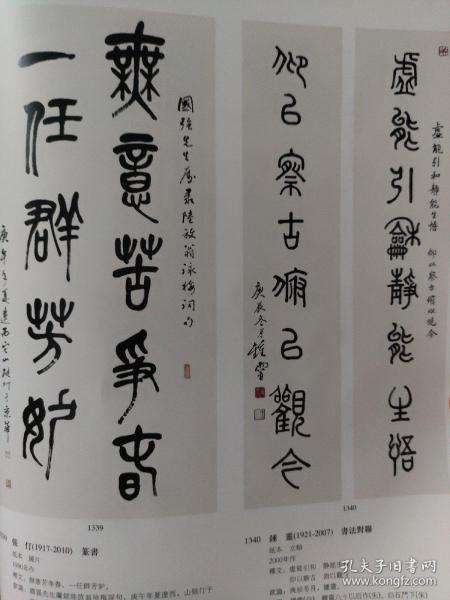 虛能引龢靜能生悟
虛能引和靜能生悟 仰以察古俯以觀今
仰以察古俯以觀今
庚辰冬月鍾靈
無意苦爭春
國強先生屬录陸放翁詠梅詞句
一任群芳妒
1339
1340
仃(1917-2010) 篆書
紙本 鏡片
1990年作
釋文:無意苦爭春,一任群芳妒。
1340 鍾 靈(1921-2007) 書法對聯
紙本 立軸
2000年作
釋文:虛能引和 靜能生
款識:庚辰冬月,鍾靈。
孔夫子旧书网